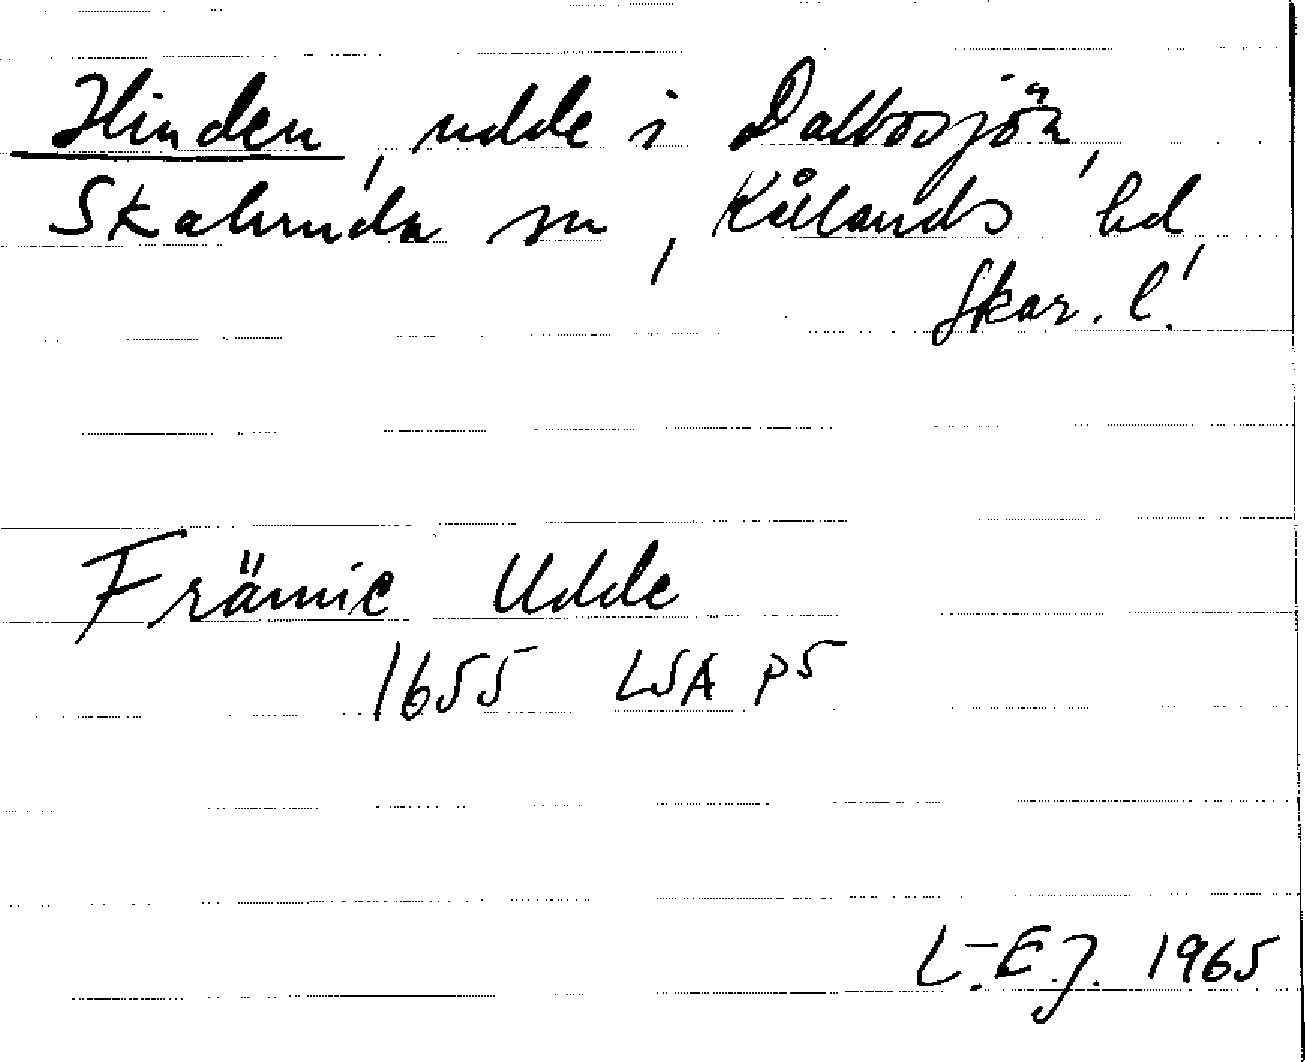 Hinden, udde i Dalbosjön,
Skalunda sn, Kållands hd,
Skar. l.
Främie Udde
1655 LSA P5
L.-E.J. 1965